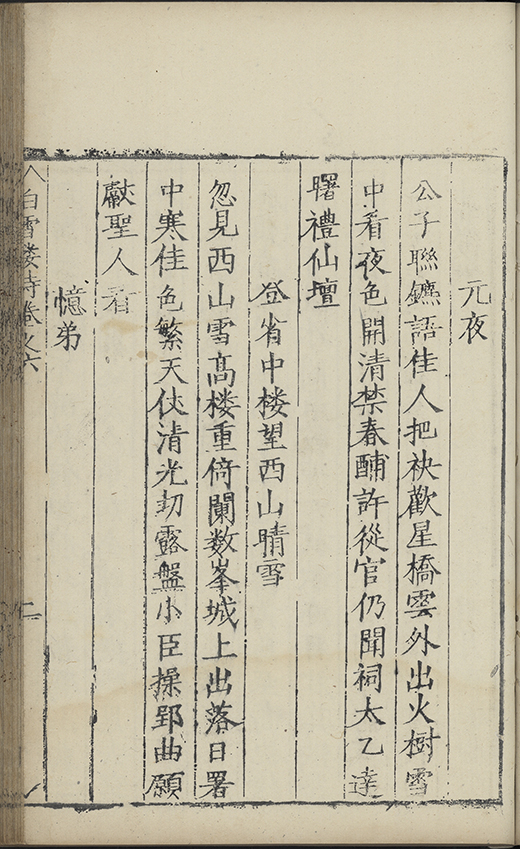 元夜
公子聯鑣語佳人把袂歡星橋雲外出火樹雪
中看夜色開清禁春酺許從官仍聞祠太乙達
曙禮仙壇
登省中楼望西山晴雪
忽見西山雪髙楼重倚闌数峯城上出落日署
中寒佳色繁天仗清光切露盤小臣操郢曲願
獻聖人看
憶弟
白雪楼詩卷之六
二